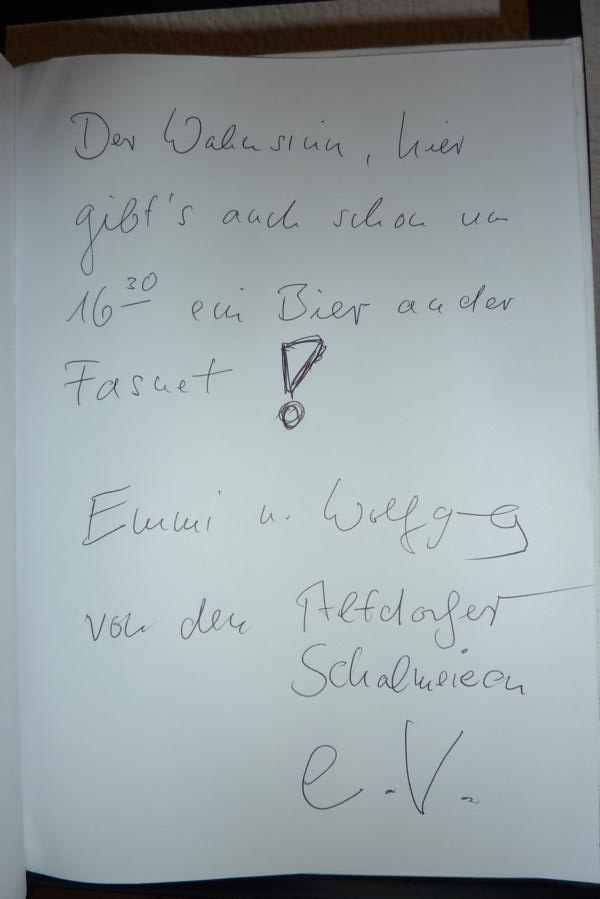 Der Wahnsinn, hier
gibt's auch schon um
16³⁰ ein Bier an der
Fasnet !
Emmi u. Wolfgang
von den Altdorfer
Schalmeien
e.V.